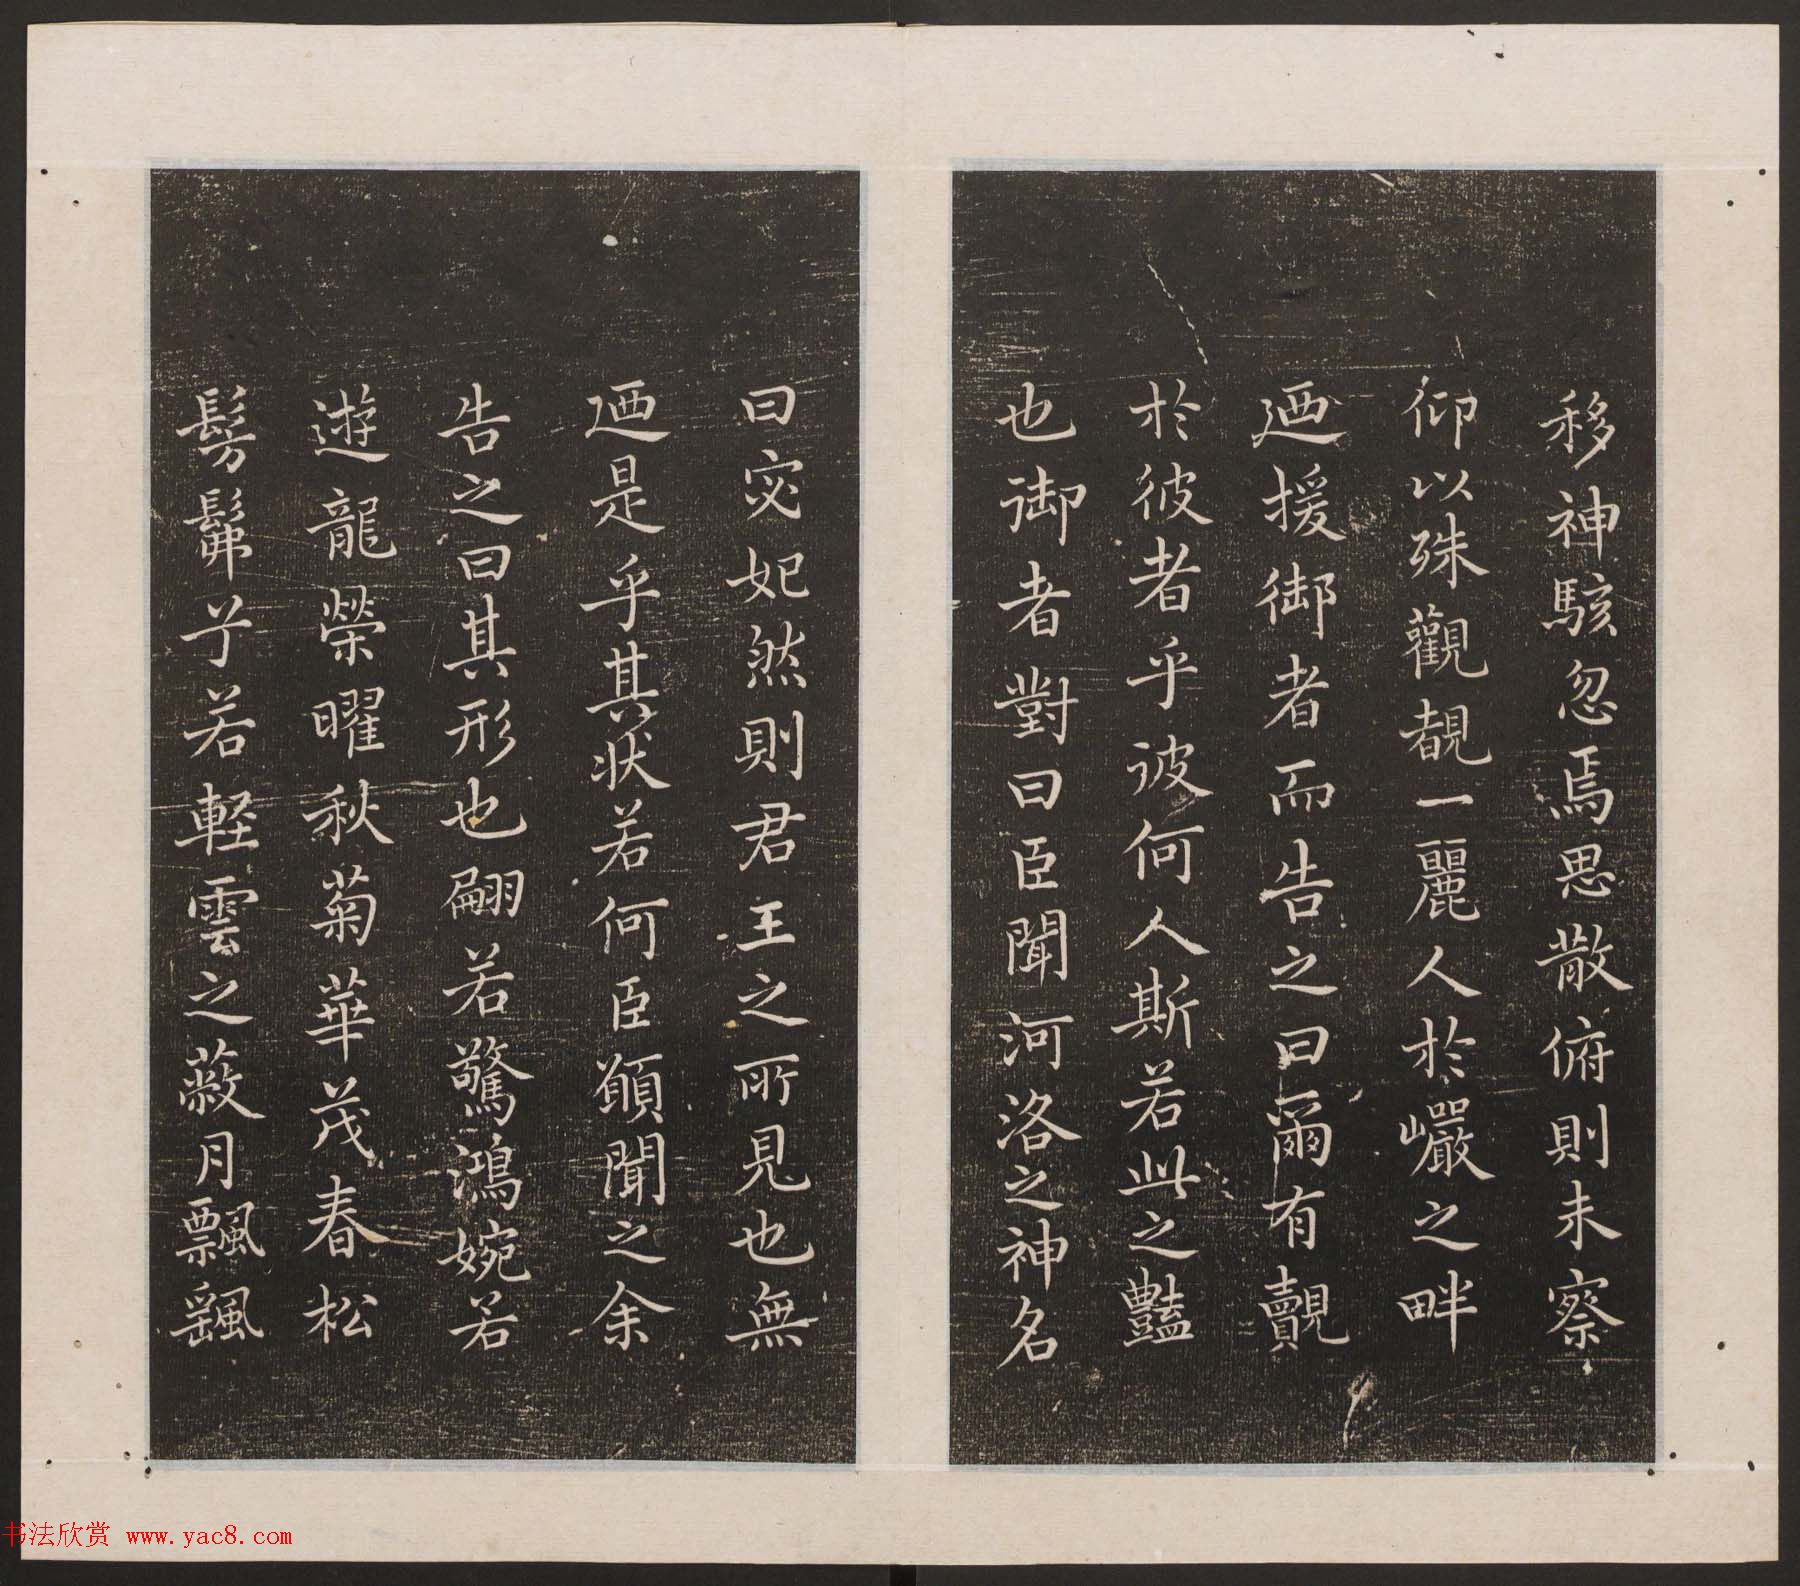 移神駭忽焉思散俯則未察
仰以殊觀覩一麗人於巖之畔
廼援御者而告之曰爾有覿
於彼者乎彼何人斯若此之豔
也御者對曰臣聞河洛之神名
曰宓妃然則君王之所見也無
廼是乎其狀若何臣願聞之余
告之曰其形也翩若驚鴻婉若
遊龍榮曜秋菊華茂春松
髣髴兮若輕雲之蔽月飄颻
书法欣赏 www.yac8.com